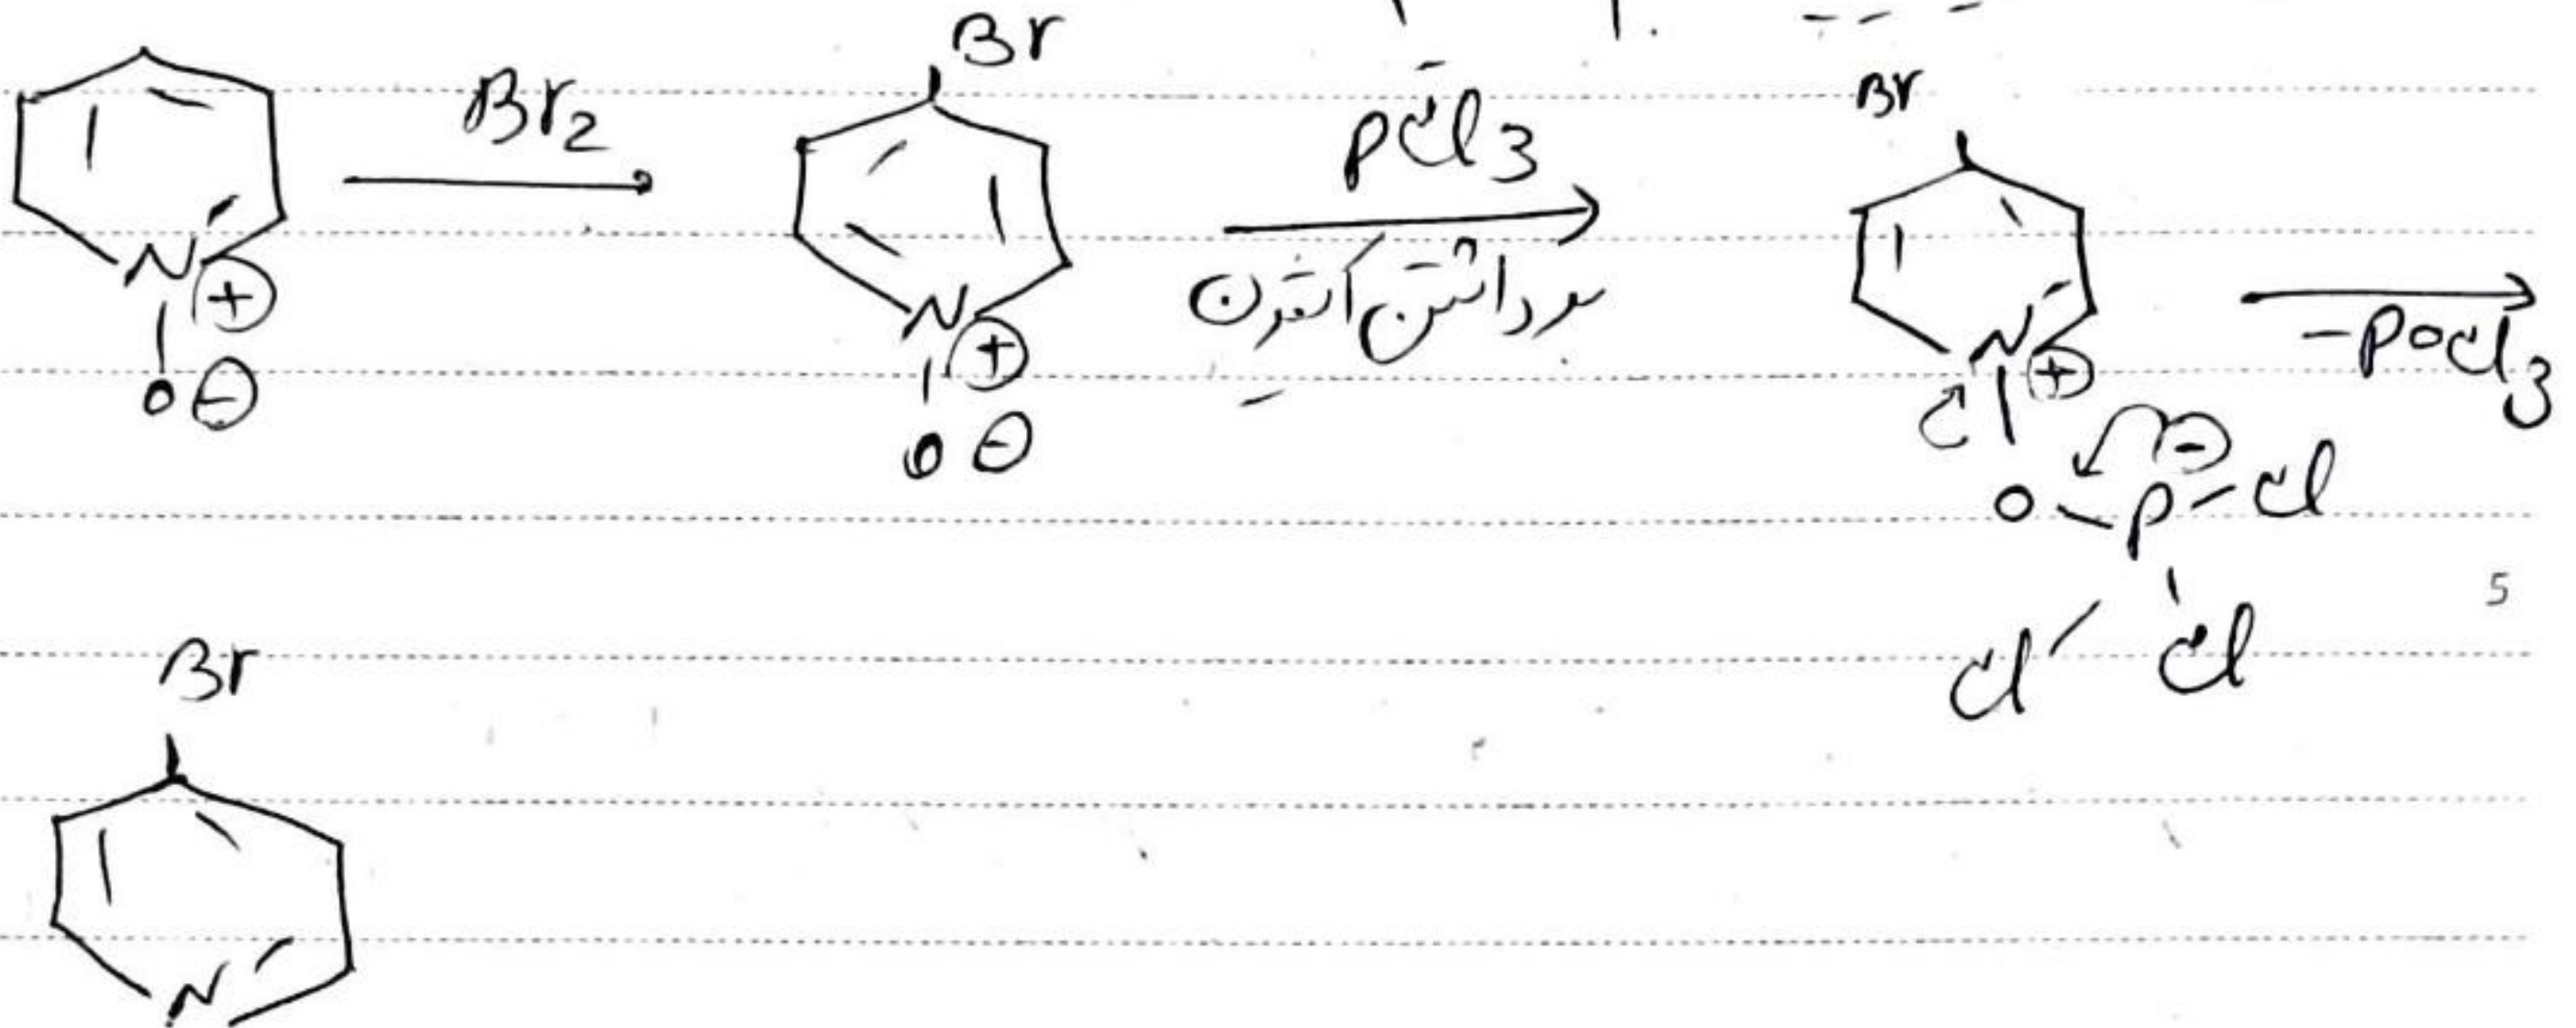 Br
Br₂
PCl₃
برداشتن اکسیژن
N ⊕
O ⊖
N ⊕
O ⊖
Br
N ⊕
O – P ⊖ – Cl
Cl Cl
–POCl₃
5
Br
N